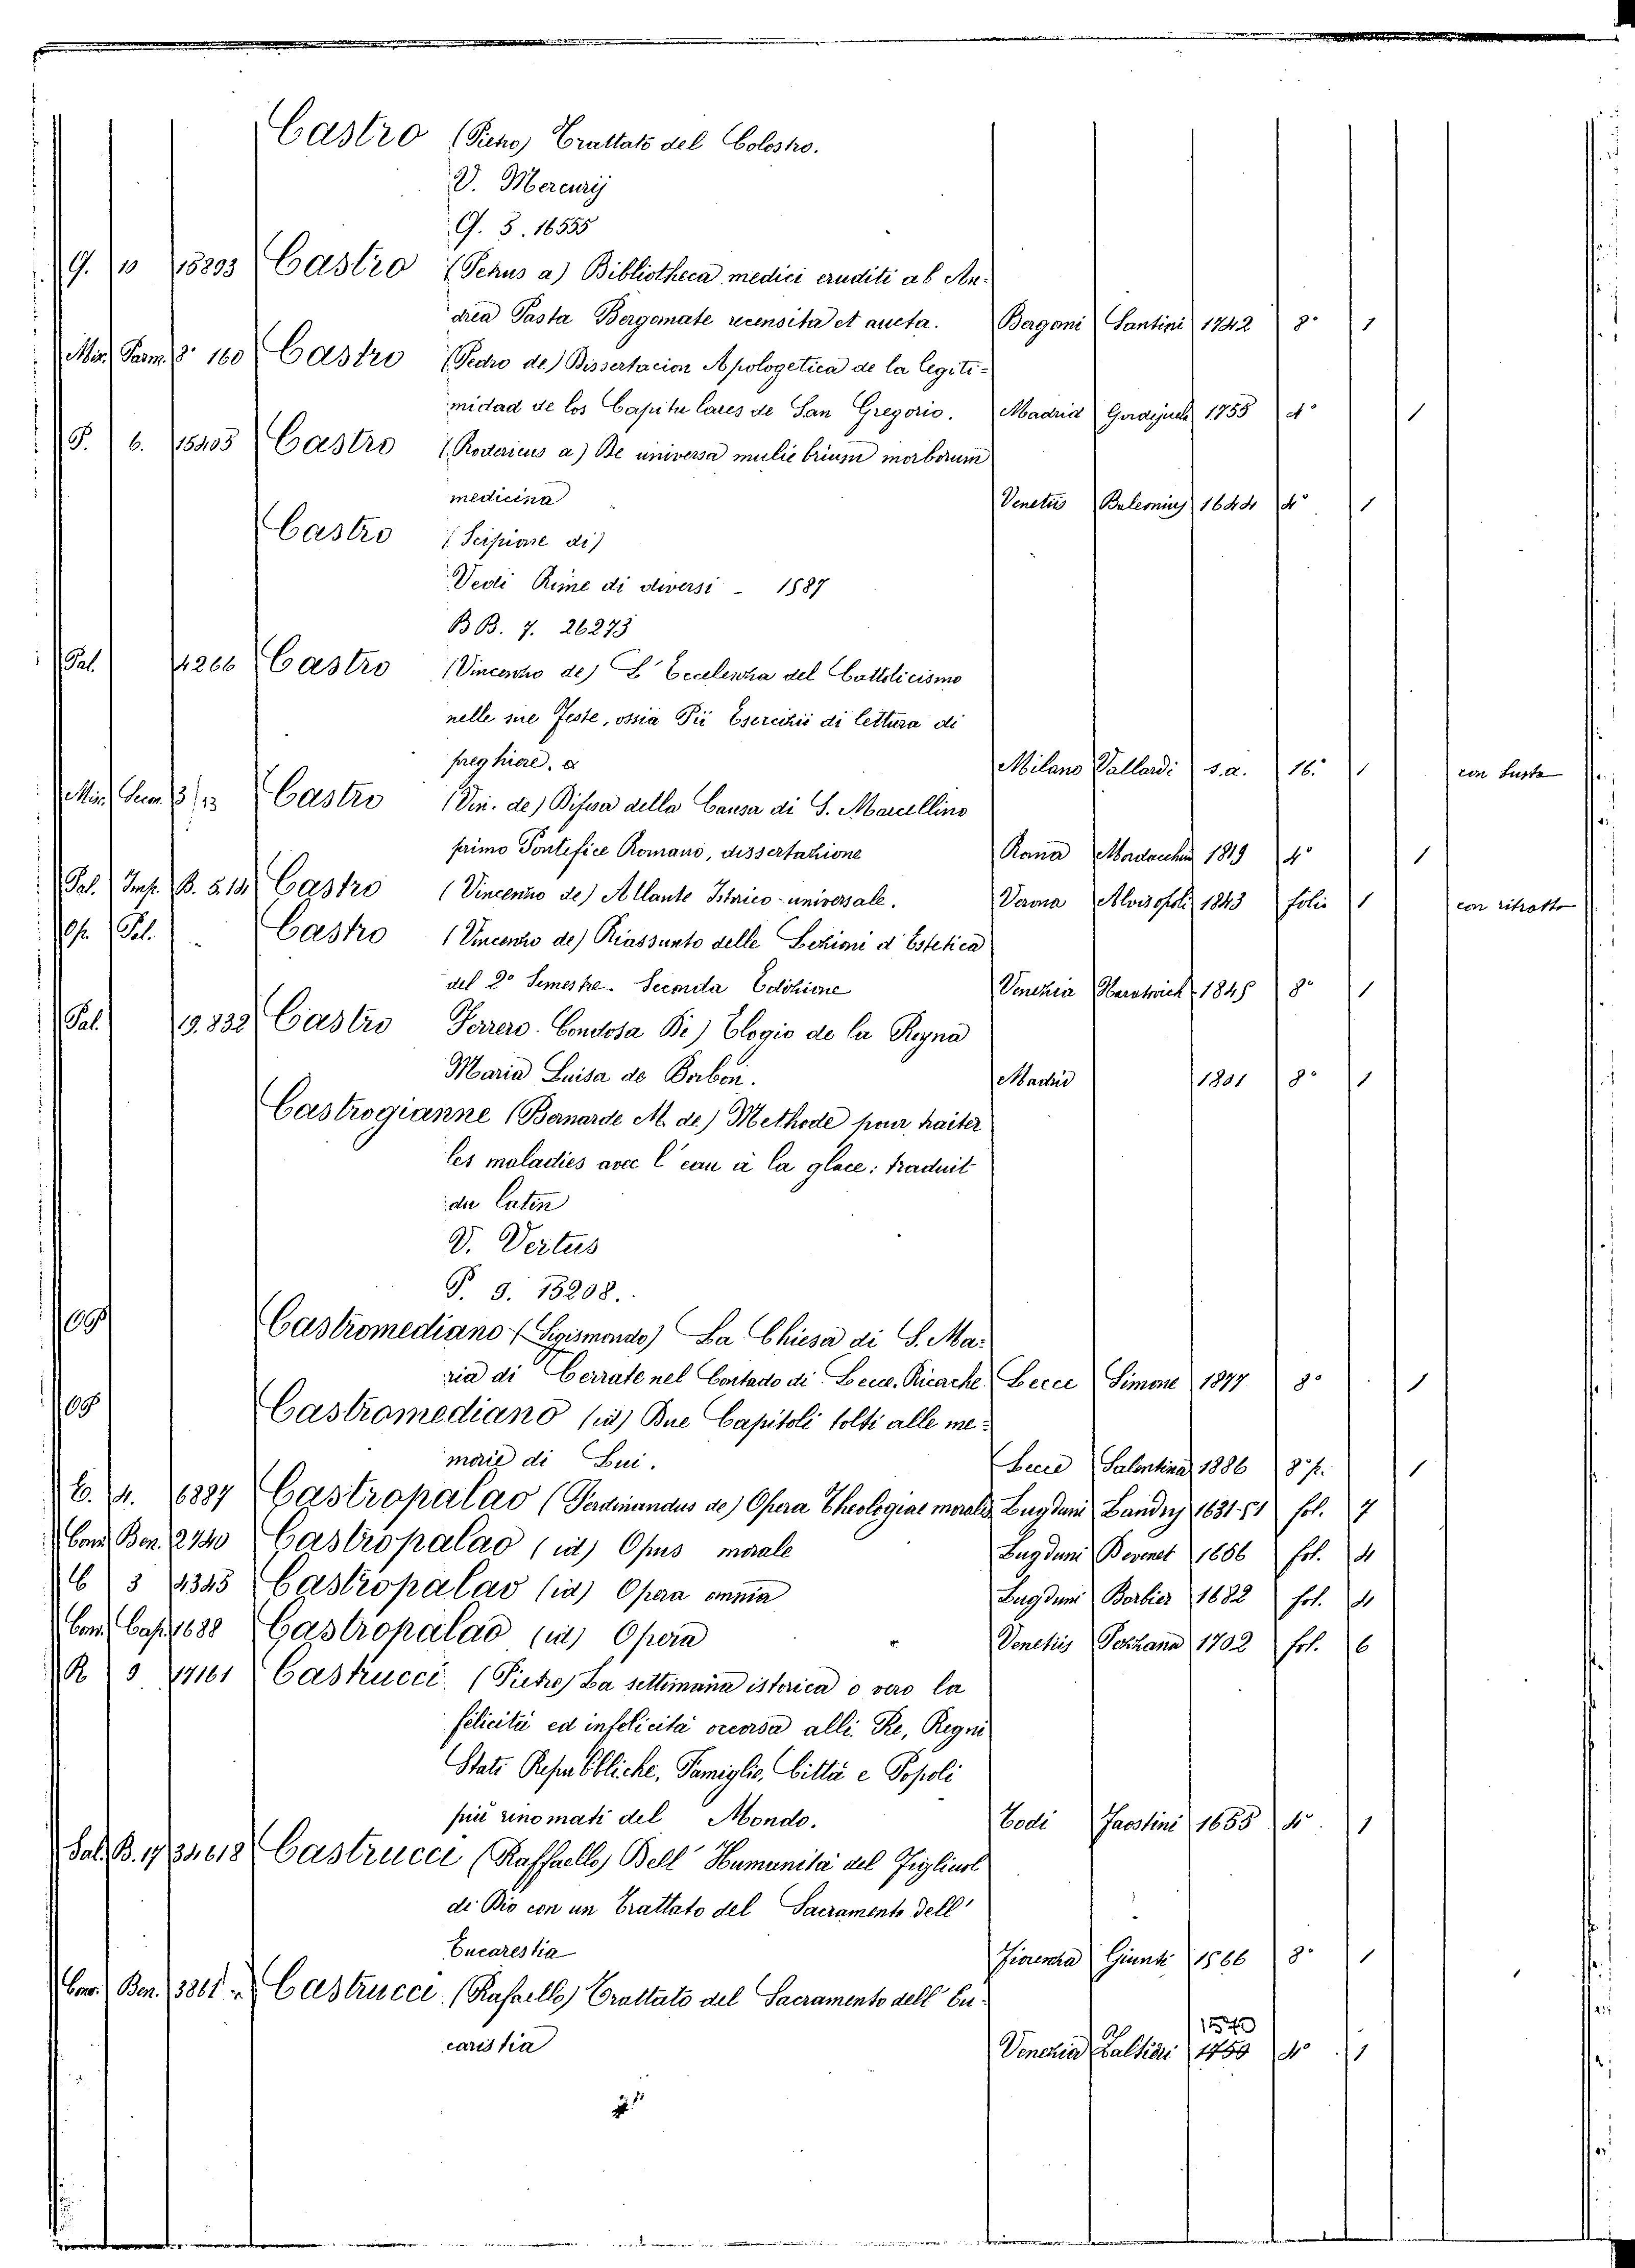 Castro (Pietro) Trattato del Colostro.
V. Mercurij
G. 3. 16555
G. 10 15893 Castro (Petrus a) Bibliotheca medici eruditi ab An-
drea Pasta Bergomate recensita et aucta. Bergomi Santini 1742 8° 1
Mis. Parm. 8° 160 Castro (Pedro de) Dissertacion Apologetica de la legiti=
midad de los Capitulares de San Gregorio. Madrid 1755 4° 1
P. 6. 15405 Castro (Rodericus a) De universa muliebrium morborum
medicina Venetiis 1644 4° 1
Castro (Scipione di)
Vedi Rime di diversi - 1587
BB. 7. 26273
Pal. 4266 Castro (Vincenzo de) L' Eccelenza del Cattolicismo
nelle sue Feste, ossia Pii Esercizii di lettura di
preghiere. & Milano Vallardi s.a. 16.° 1 con busta
Mis. 3/13 Castro (Vin. de) Difesa della Causa di S. Marcellino
primo Pontefice Romano, dissertazione Roma Mordacchini 1819 4° 1
Pal. Imp. B. 5.14 Castro (Vincenzo de) Atlante Istorico-universale. Verona Alvisopoli 1843 folio 1 con ritratto
Op. Pal. Castro (Vincenzo de) Riassunto delle Lezioni d'Estetica
del 2° Semestre. Seconda Edizione Venezia 1845 8° 1
Pal. 19.832 Castro Ferrero-Condosa De) Elogio de la Reyna
Maria Luisa de Borbon. Madrid 1801 8° 1
Castrogianne (Bernarde M. de) Methode pour traiter
les maladies avec l'eau à la glace: traduit
du latin
V. Vertus
P. 9. 15208.
Castromediano (Sigismondo) La Chiesa di S. Ma=
ria di Cerrate nel Contado di Lecce. Ricerche. Lecce Simone 1877 8° 1
Castromediano (id) Due Capitoli tolti alle me=
morie di Lui. Lecce Salentina 1886 8° p. 1
C. 4. 6887 Castropalao (Ferdinandus de) Opera Theologiae morales Lugduni 1631-51 fol. 7
Conv. Ben. 2740 Castropalao (id) Opus morale Lugduni 1656 fol. 4
C 3 4345 Castropalao (id) Opera omnia Lugduni Borbier 1682 fol. 4
Conv. Cap. 1688 Castropalao (id) Opera Venetiis Pezzana 1702 fol. 6
R 9 17161 Castrucci (Pietro) La settimana istorica o vero la
felicità ed infelicità occorsa alli Re, Regni
Stati Repubbliche, Famiglie, Città e Popoli
più rinomati del Mondo. Todi Faostini 1655 4° 1
Sal. B. 17 34618 Castrucci (Raffaello) Dell' Humanità del Figliuol
di Dio con un Trattato del Sacramento dell'
Eucarestia Fiorenza Giunti 1566 8° 1
Conv. Ben. 3861 Castrucci (Rafaello) Trattato del Sacramento dell' Eu-
1570
caristia Venezia Zaltieri 1750 4° 1